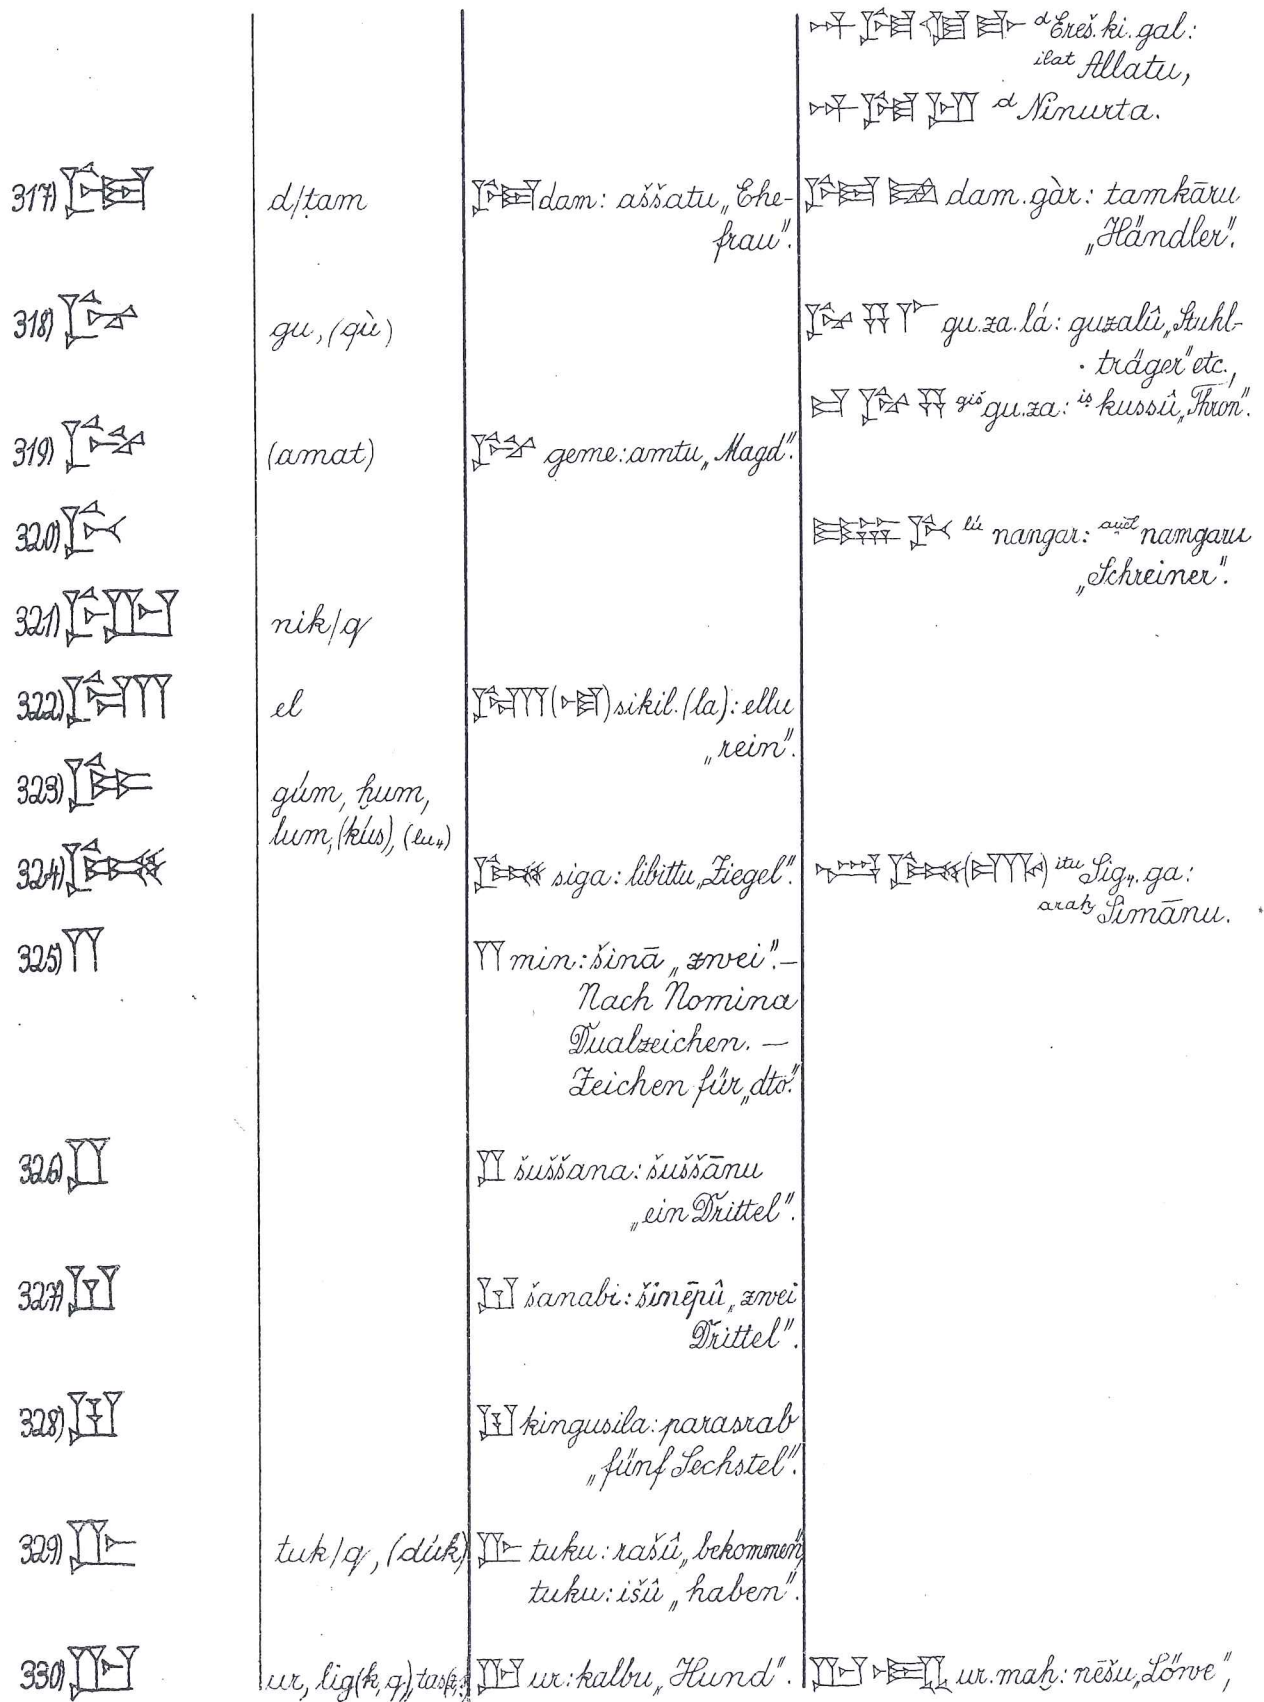 𒀭 𒊩𒌆 𒆠 𒃲 ᵈEreš.ki.gal:
ilat Allatu,
𒀭 𒊩𒌆 𒅁 ᵈNinurta.
317) 𒁮 d/ṭam 𒁮 dam: aššatu „Ehe- 𒁮 𒃼 dam.gàr: tamkāru
frau". „Händler".
318) 𒄖 gu, (qù) 𒄖 𒍝 𒇲 gu.za.lá: guzalû „Stuhl-
träger" etc.,
𒄑 𒄖 𒍝 giš gu.za: iṣ kussû „Thron".
319) 𒊩𒆳 (amat) 𒊩𒆳 geme: amtu „Magd".
320) 𒉄 𒇽 𒉄 lú nangar: awēl namgaru
„Schreiner".
321) nik/q
322) 𒂖 el 𒂖 (𒆷) sikil.(la): ellu
„rein".
323) 𒈝 gúm, ḫum,
lum, (kús), (lu₄)
324) 𒋞 𒋞 siga: libittu „Ziegel". 𒌗 𒋞 (𒂵) itu Sig₄.ga:
araḫ Simānu.
325) 𒈫 𒈫 min: šinā „zwei".–
Nach Nomina
Dualzeichen. –
Zeichen für „dto".
326) 𒑚 𒑚 šuššana: šuššānu
„ein Drittel".
327) 𒑛 𒑛 šanabi: šinēpû „zwei
Drittel".
328) 𒑜 𒑜 kingusila: parasrab
„fünf Sechstel".
329) 𒌇 tuk/q, (dúk) 𒌇 tuku: rašû „bekommen",
tuku: išû „haben".
330) 𒌨 ur, lig(k, q), 𒌨 ur: kalbu „Hund". 𒌨 𒈤 ur.maḫ: nēšu „Löwe",